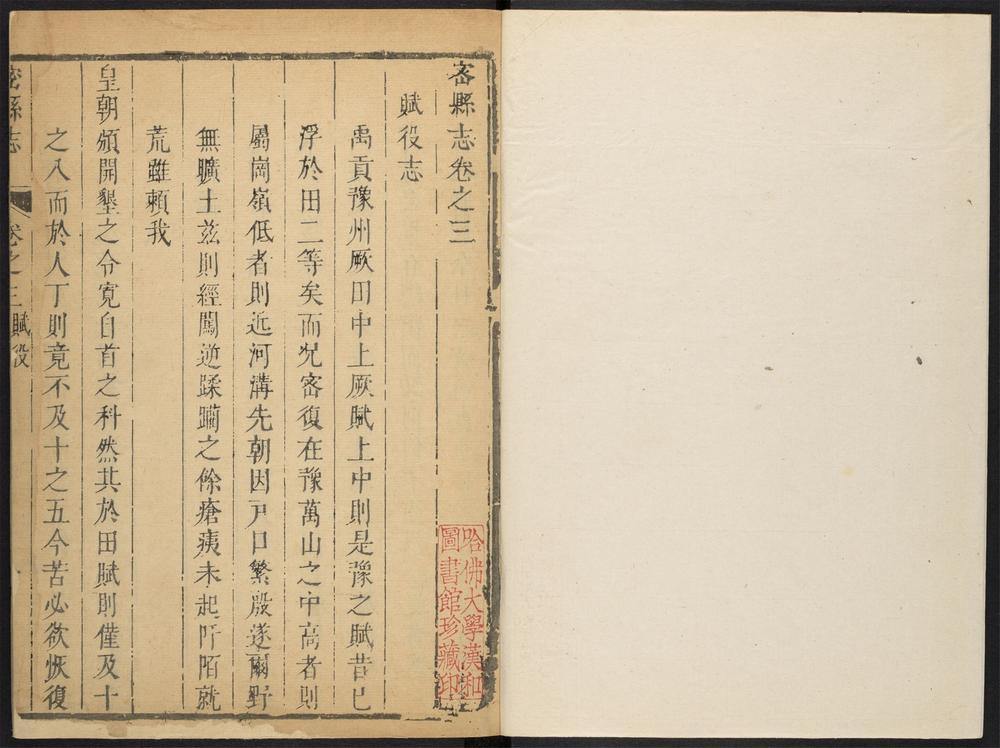 密縣志卷之三
賦役志
禹貢豫州厥田中上厥賦上中則是豫之賦昔已
浮於田二等矣而况密復在豫萬山之中高者則
屬崗嶺低者則近河溝先朝因戸口繁殷遂爾野
無曠土兹則經闖逆蹂躪之餘瘡痍未起阡陌就
荒雖賴我
皇朝頒開墾之令寛自首之科然其於田賦則僅及十
之八而於人丁則竟不及十之五今苦必欲恢復
密縣志
卷之三賦役
哈佛大學漢和
圖書館珍藏印